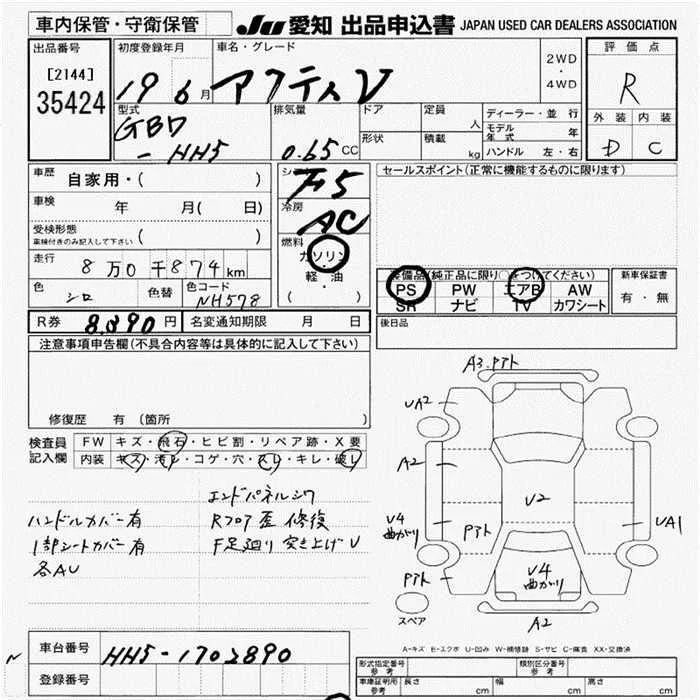 車内保管・守衛保管 JU 愛知 出品申込書 JAPAN USED CAR DEALERS ASSOCIATION
出品番号 初度登録年月 車名・グレード 2WD・4WD 評価点
[2144] 35424 19 6月 アクティV R
型式 GBD-HH5 排気量 0.65CC ドア 定員 人 ディーラー・並行
形状 積載 kg モデル年式 年
ハンドル 左・右
外装 内装
D C
車歴 自家用・( )
車検 年 月( 日)
受検形態 車検付きのみ記入して下さい ( )
走行 8万0千874km
色 シロ 色替 色コード NH578
シフト F5
冷房 AC
燃料 ガソリン・軽・油 ( )
セールスポイント(正常に機能するものに限ります)
装備品(純正品に限り○をつけてください) 新車保証書
PS PW エアB AW 有・無
SR ナビ TV カワシート
R券 8.890円 名変通知期限 月 日 後日品
注意事項申告欄(不具合内容等は具体的に記入して下さい)
修復歴 有 (箇所
検査員記入欄 FW キズ・飛石・ヒビ割・リペア跡・X要
内装 キズ・汚レ・コゲ・穴・スレ・キレ・破レ
エンドパネルシワ
ハンドルカバー有 Rフロア歪 修復
1部シートカバー有 F足廻リ 突き上げV
各AU
A3.アト
UA2
A2
V2
V4 曲がり
アト
UA1
アト
V4 曲がり
A2
スペア
A-キズ E-エクボ U-凹み W-補修跡 S-サビ C-腐食 XX-交換済
車台番号 HH5-1702890
登録番号
形式指定番号 参考 類別区分番号 参考
車庫証明用 参考 長さ cm 幅 cm 高さ cm